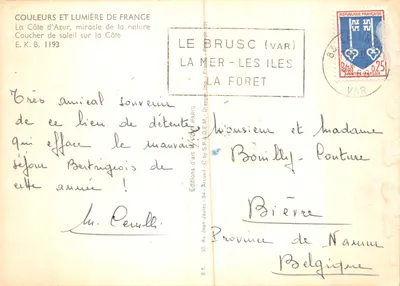 COULEURS ET LUMIÈRE DE FRANCE
La Côte d'Azur, miracle de la nature
Coucher de soleil sur la Côte
E. K. B. 1193
LE BRUSC (VAR)
LA MER - LES ILES
LA FORET
REPUBLIQUE FRANÇAISE
0,25
VAR
Très amical souvenir
de ce lieu de détente
qui efface le mauvais
séjour
cette année !
Monsieur et Madame
Bouilly-Couture
Bièvre
Province de Namur
Belgique